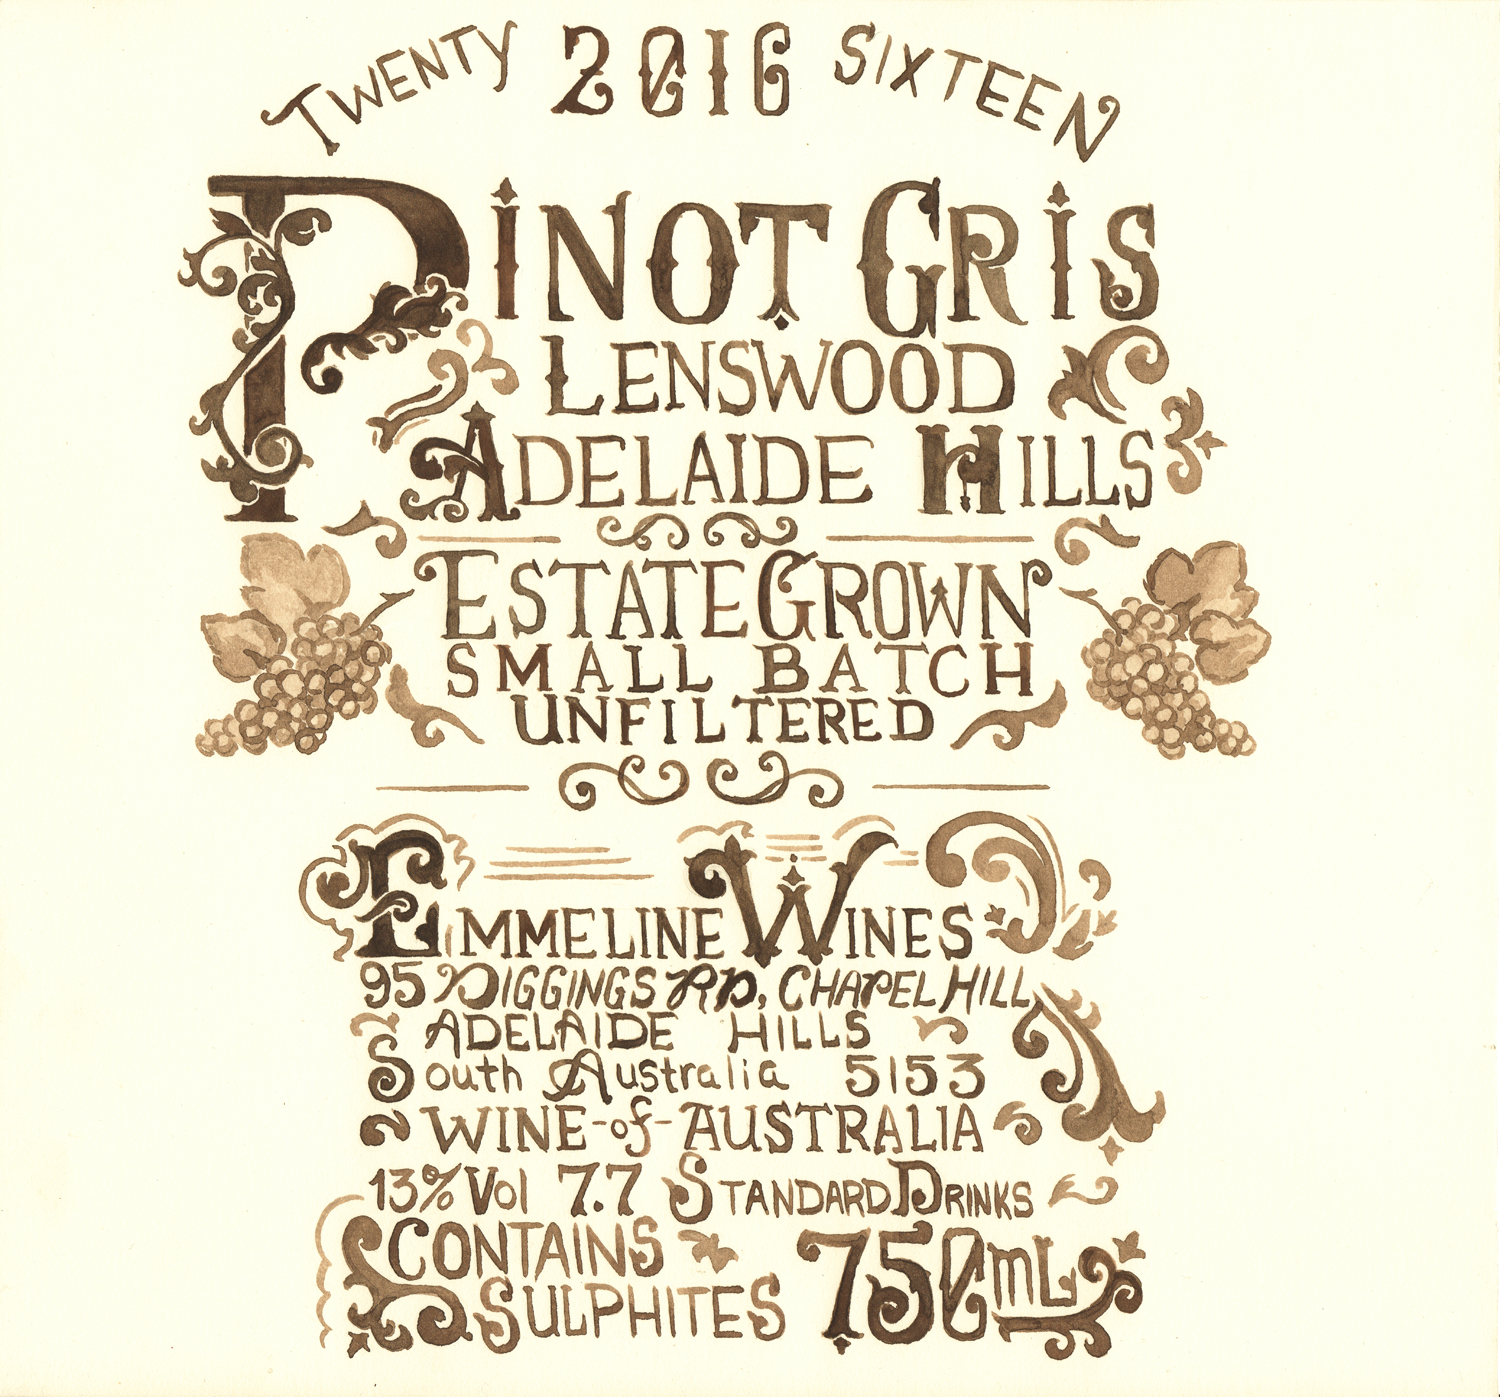 TWENTY 2016 SIXTEEN
PINOT GRIS
LENSWOOD
ADELAIDE HILLS
ESTATE GROWN
SMALL BATCH
UNFILTERED
EMMELINE WINES
95 DIGGINGS RD, CHAPEL HILL
ADELAIDE HILLS
South Australia 5153
WINE-of-AUSTRALIA
13% Vol 7.7 STANDARD DRINKS
CONTAINS
SULPHITES 750mL